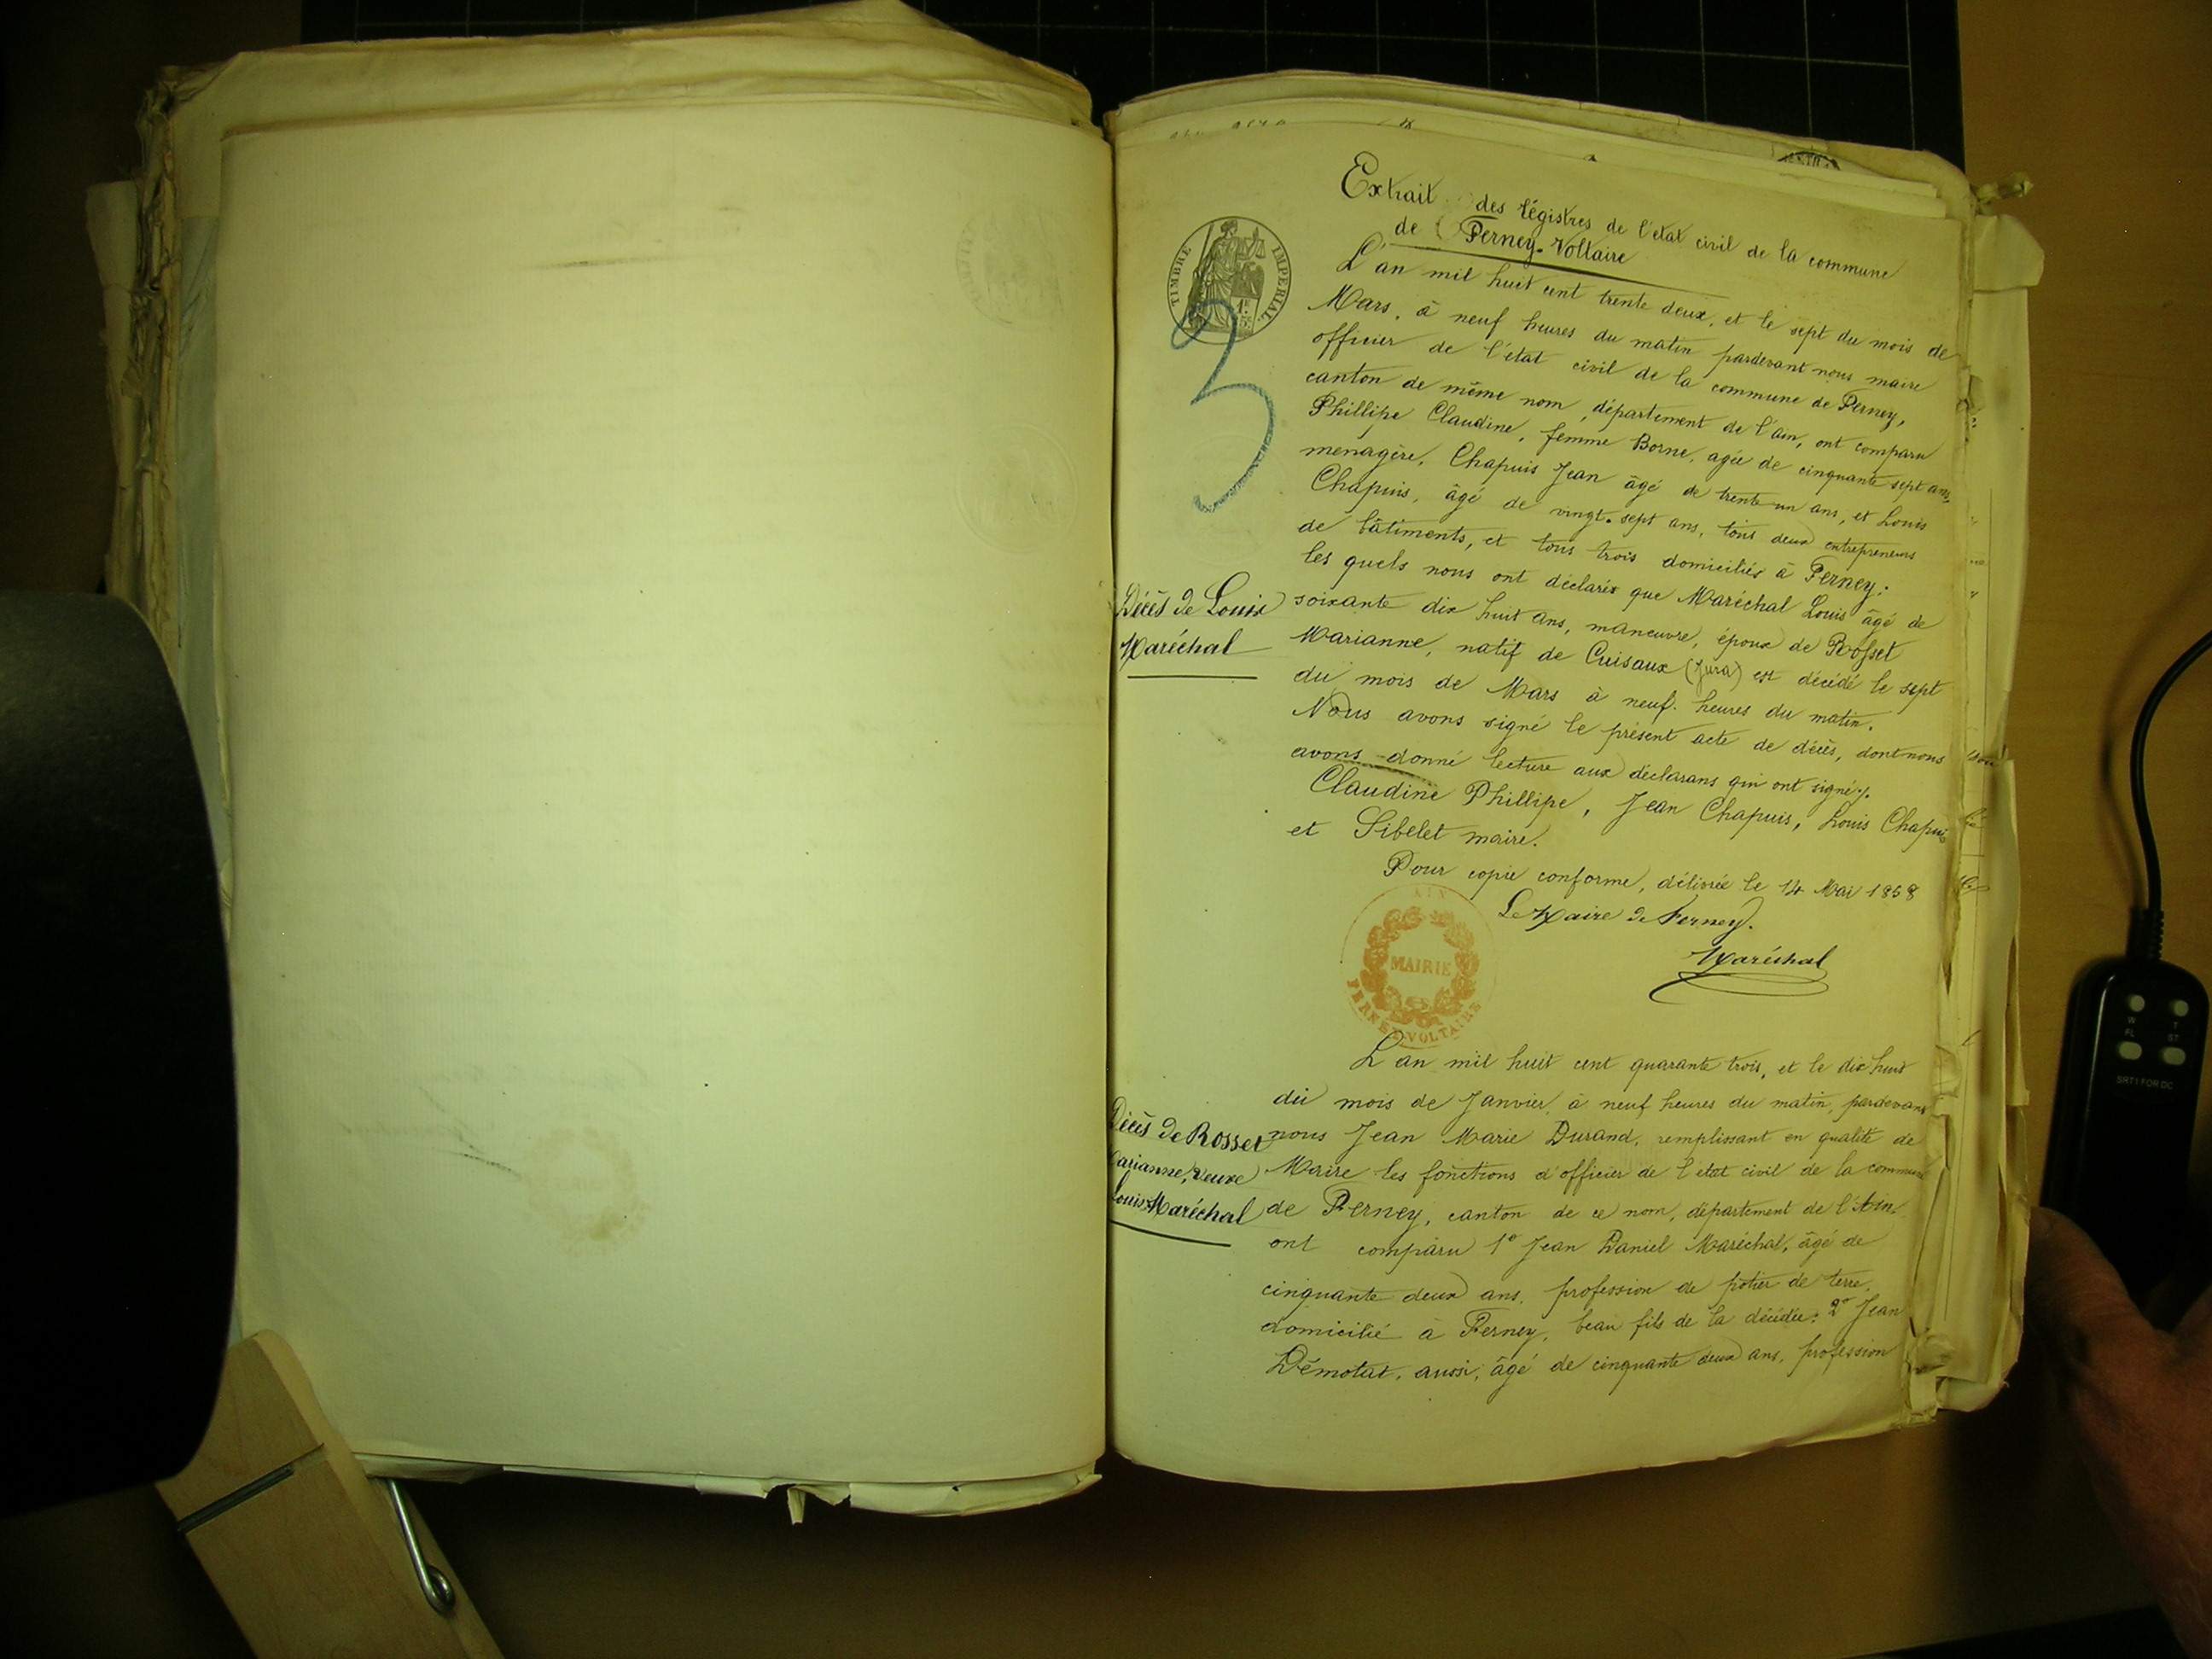 Extrait des régistres de l'état civil de la commune
de Ferney-Voltaire
TIMBRE IMPERIAL
3
L'an mil huit cent trente deux, et le sept du mois de
Mars, à neuf heures du matin pardevant nous maire
officier de l'état civil de la commune de Ferney,
canton de même nom, département de l'ain, ont comparu
Phillipe Claudine, femme Borne, agée de cinquante sept ans,
menagère, Chapuis Jean âgé de trente un ans, et Louis
Chapuis, âgé de vingt-sept ans, tous deux entrepreneurs
de bâtiments, et tous trois domiciliés à Ferney;
les quels nous ont déclarés que Maréchal Louis âgé de
Décès de Louis
Maréchal
soixante dix huit ans, manœuvre, époux de Rosset
Marianne, natif de Cuisaux (Jura) est décédé le sept
du mois de Mars à neuf heures du matin.
Nous avons signé le présent acte de décès, dont nous
avons donné lecture aux déclarans qui ont signé.
Claudine Phillipe, Jean Chapuis, Louis Chapuis
et Sibelet maire.
Pour copie conforme, délivrée le 14 Mai 1858
Le Maire de Ferney.
Maréchal
AIN
MAIRIE
FERNEY-VOLTAIRE
L'an mil huit cent quarante trois, et le dix huit
du mois de Janvier, à neuf heures du matin, pardevant
Décès de Rosset
Marianne, veuve
Louis Maréchal
nous Jean Marie Durand, remplissant en qualité de
Maire les fonctions d'officier de l'état civil de la commune
de Ferney, canton de ce nom, département de l'Ain
ont comparu 1° Jean Daniel Maréchal, âgé de
cinquante deux ans, profession de potier de terre,
domicilié à Ferney, beau fils de la décédée; 2° Jean
Démotat, aussi, âgé de cinquante deux ans, profession
W
T
FL
ST